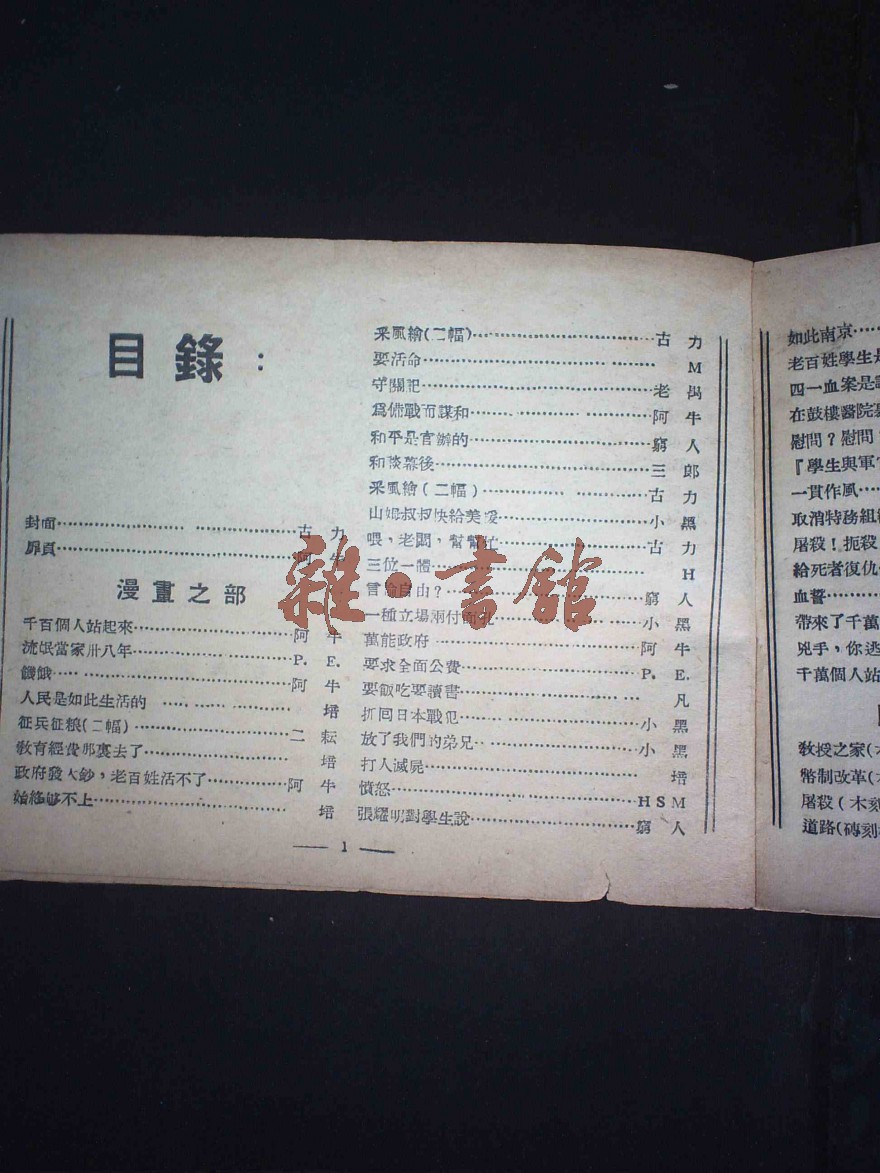 目錄：
封面……………………古力
扉頁……………………阿牛
漫畫之部
千百個人站起來……………………阿牛
流氓當家卅八年……………………P. E.
饑餓……………………阿牛
人民是如此生活的……………………培
征兵征粮(二幅)……………………二耘
敎育經費那裏去了……………………培
政府發大鈔，老百姓活不了……………………阿牛
始終够不上……………………培
采風繪(二幅)……………………古力
要活命……………………M
守關記……………………老
爲備戰而謀和……………………阿牛
和平是官辦的……………………窮人
和談幕後……………………三郎
采風繪(二幅)……………………古力
山姆叔叔快給美援……………………小黑
喂，老闆，幫幫忙……………………古力
三位一體……………………H
言論自由？……………………窮人
一種立場兩付面孔……………………小黑
萬能政府……………………阿牛
要求全面公費……………………P. E.
要飯吃要讀書……………………凡
抓回日本戰犯……………………小黑
放了我們的弟兄……………………小黑
打人滅屍……………………培
憤怒……………………HSM
張耀明對學生說……………………窮人
— 1 —
如此南京……………
老百姓學生是
四一血案是
在鼓樓醫院
慰問？慰問
『學生與軍
一貫作風……
取消特務組
屠殺！扼殺
給死者復仇
血誓……………
帶來了千萬
兇手，你逃
千萬個人站
敎授之家(木
幣制改革(木
屠殺(木刻
道路(磚刻
雜·書館